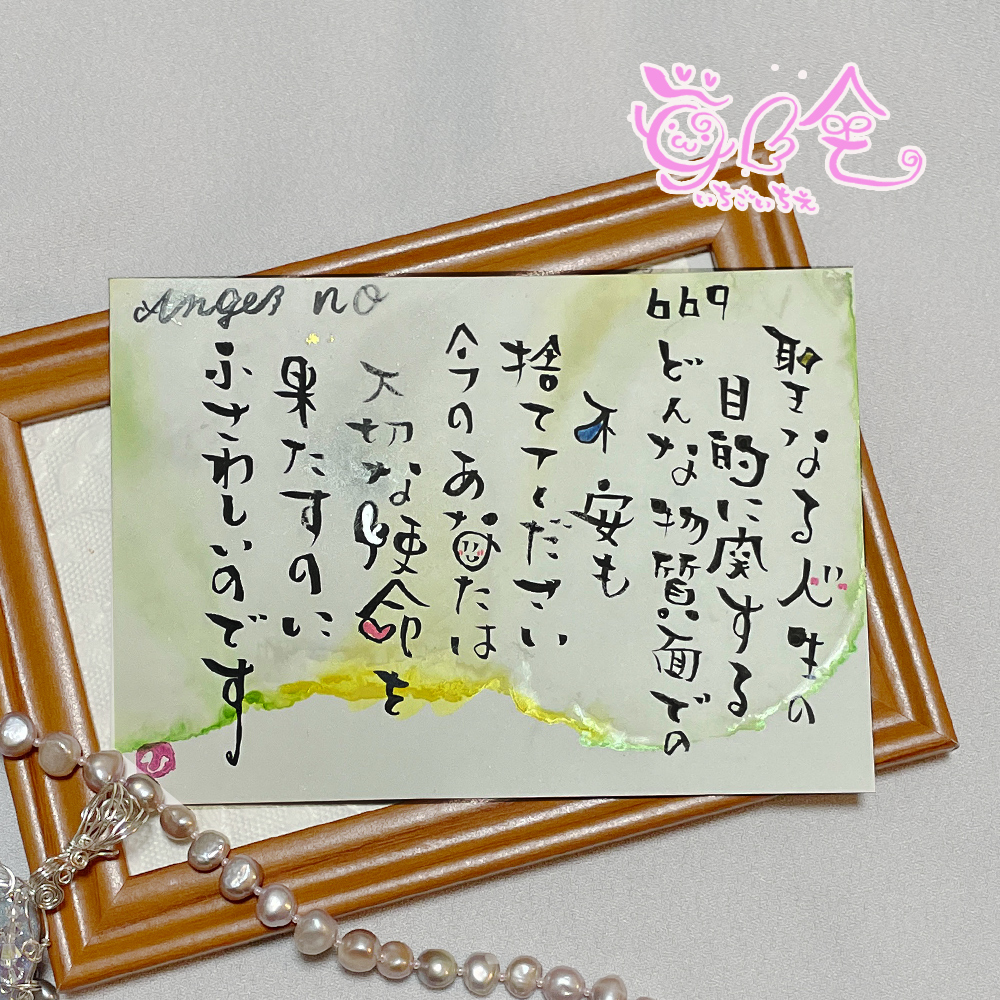 苺慧舍
いちごいちえ
Angel no 669
聖なる人生の
目的に関する
どんな物質面での
不安も
捨ててください
今のあなたは
大切な使命を
果たすのに
ふさわしいのです